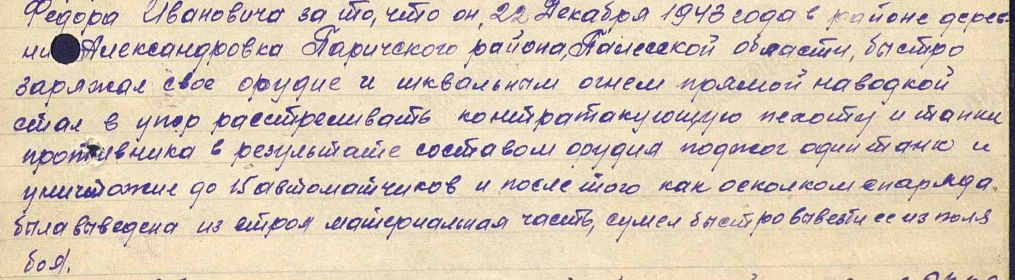 Федора Ивановича за то, что он, 22 декабря 1943 года в районе дерев-
ни Александровка Паричского района, Полесской области, быстро
заряжал свое орудие и шквальным огнем прямой наводкой
стал в упор расстреливать контратакующую пехоту и танки
противника в результате составом орудия поджог один танк и
уничтожил до 15 автоматчиков и после того как осколком снаряда
была выведена из строя материальная часть, сумел быстро вывезти ее из поля
боя.